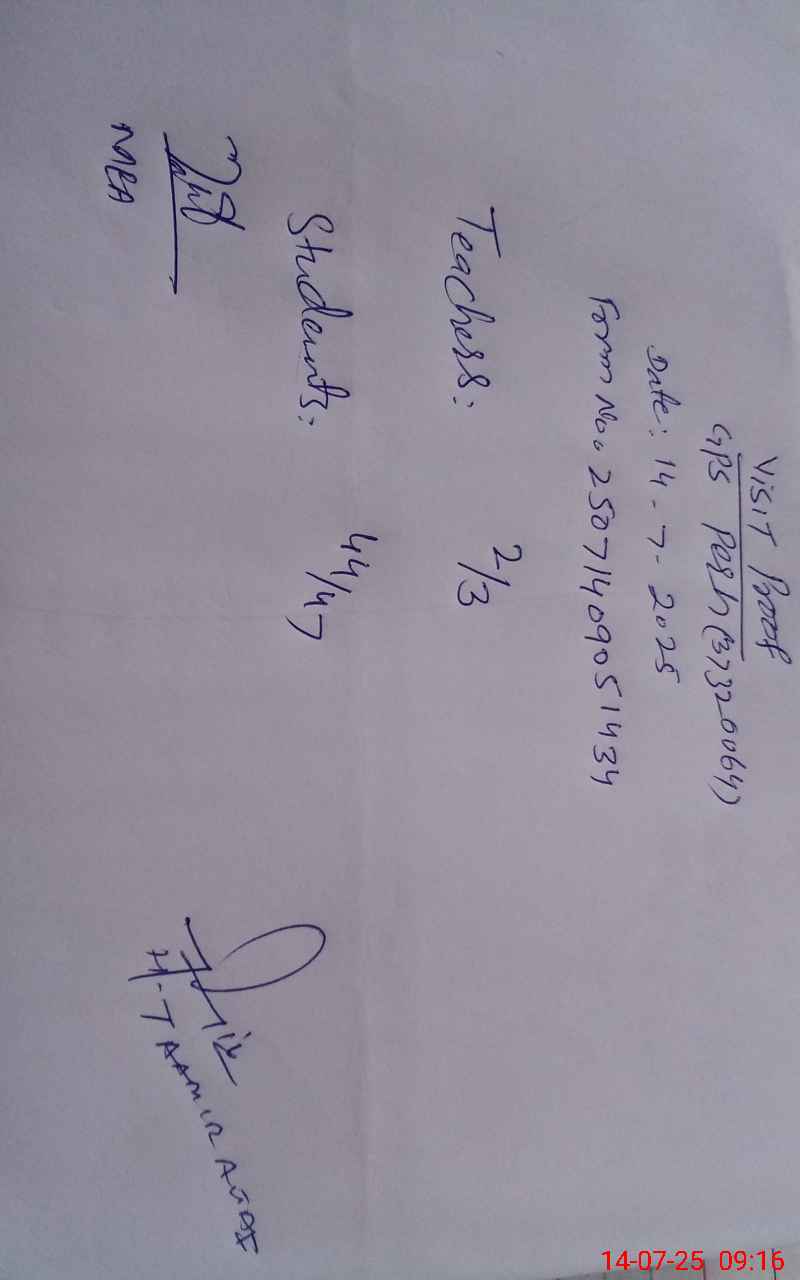 VISIT Proof
GPS Pesh (37320064)
Date: 14-7-2025
Form No. 25071409051434
Teachers: 2/3
Students: 44/47
MEA
H-T AAMIR
14-07-25 09:16